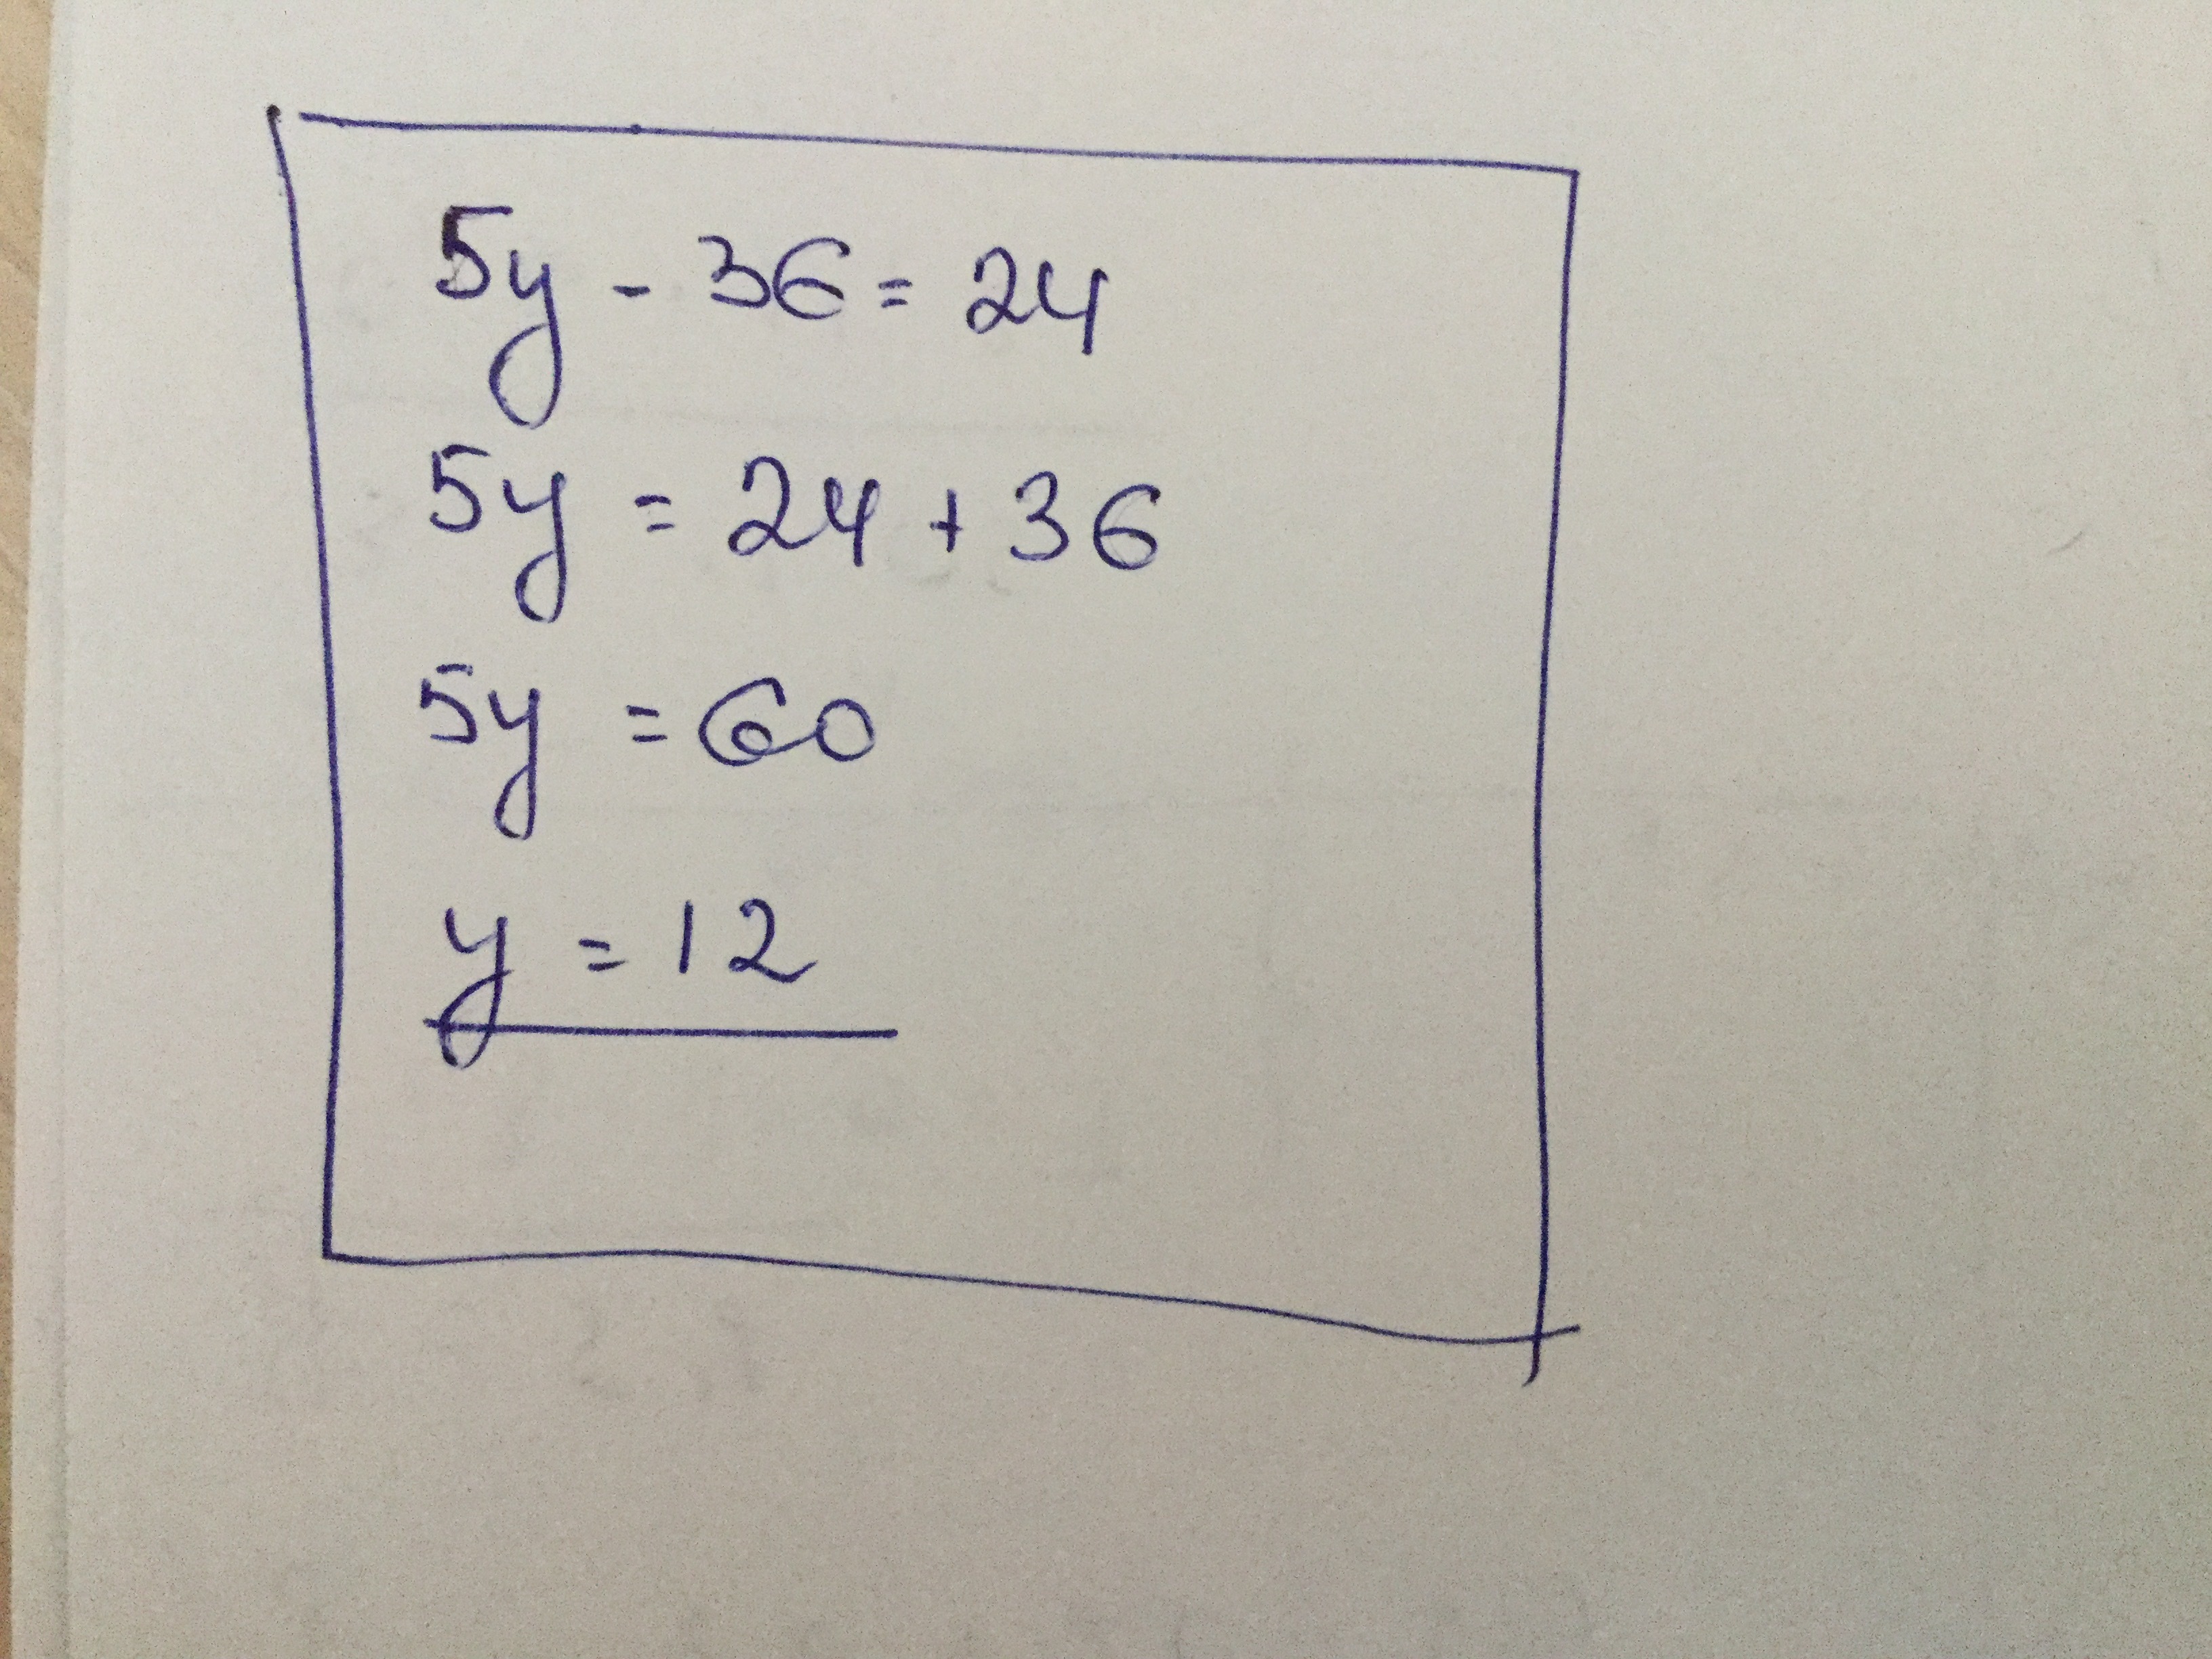 5y - 36 = 24
5y = 24 + 36
5y = 60
y = 12